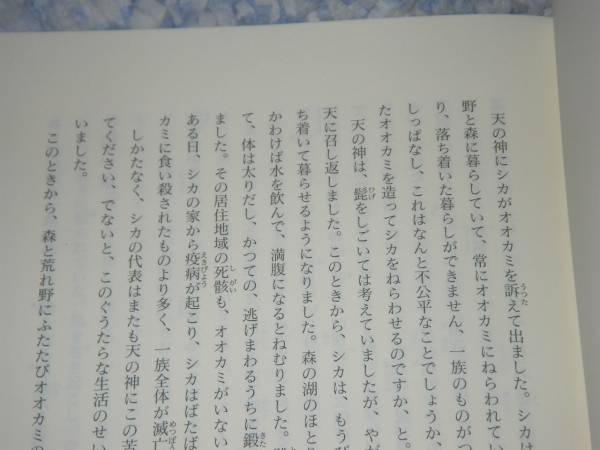 天の神にシカがオオカミを訴えて出ました。シカは
野と森に暮らしていて、常にオオカミにねらわれてい
り、落ち着いた暮らしができません、一族のものがつ
しっぱなし、これはなんと不公平なことでしょうか、
たオオカミを造ってシカをねらわせるのですか、と。
天の神は、髭をしごいては考えていましたが、やが
天に召し返しました。このときから、シカは、もうび
ち着いて暮らせるようになりました。森の湖のほとり
かわけば水を飲んで、満腹になるとねむりました。
て、体は太りだし、かつての、逃げまわるうちに鍛
ました。その居住地域の死骸も、オオカミがいない
ある日、シカの家から疫病が起こり、シカはばたば
カミに食い殺されたものより多く、一族全体が滅亡
しかたなく、シカの代表はまたも天の神にこの苦
てください、でないと、このぐうたらな生活のせい
いました。
このときから、森と荒れ野にふたたびオオカミの